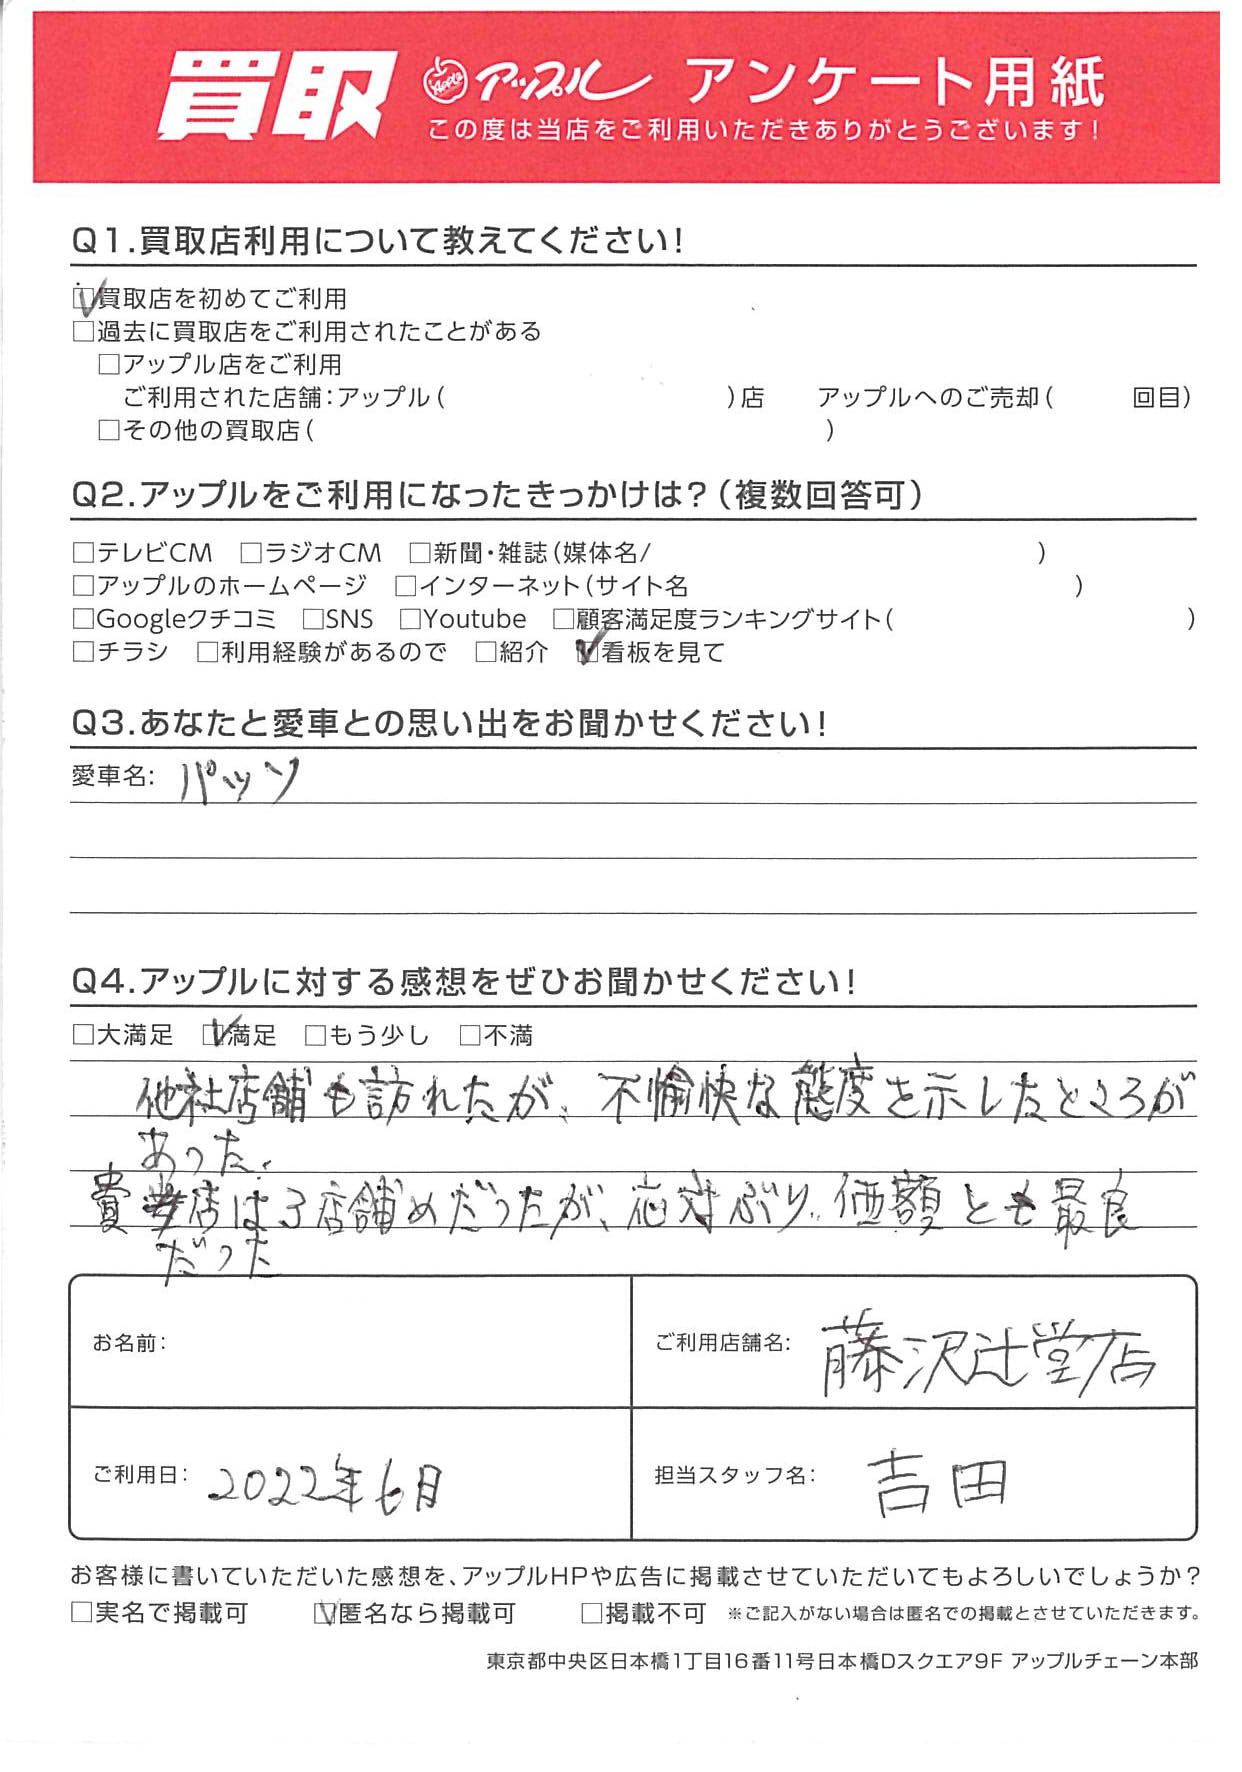 買取 Apple アップル アンケート用紙
この度は当店をご利用いただきありがとうございます!
Q1.買取店利用について教えてください!
☑買取店を初めてご利用
□過去に買取店をご利用されたことがある
□アップル店をご利用
ご利用された店舗:アップル( )店 アップルへのご売却( 回目)
□その他の買取店( )
Q2.アップルをご利用になったきっかけは?(複数回答可)
□テレビCM □ラジオCM □新聞・雑誌(媒体名/ )
□アップルのホームページ □インターネット(サイト名 )
□Googleクチコミ □SNS □Youtube □顧客満足度ランキングサイト( )
□チラシ □利用経験があるので □紹介 ☑看板を見て
Q3.あなたと愛車との思い出をお聞かせください!
愛車名: パッソ
Q4.アップルに対する感想をぜひお聞かせください!
□大満足 ☑満足 □もう少し □不満
他社店舗も訪れたが、不愉快な態度を示したところが
あった。
貴店は3店舗めだったが、応対ぶり、価額とも最良
だった
お名前:
ご利用店舗名: 藤沢辻堂店
ご利用日: 2022年6月
担当スタッフ名: 吉田
お客様に書いていただいた感想を、アップルHPや広告に掲載させていただいてもよろしいでしょうか?
□実名で掲載可 ☑匿名なら掲載可 □掲載不可 ※ご記入がない場合は匿名での掲載とさせていただきます。
東京都中央区日本橋1丁目16番11号日本橋Dスクエア9F アップルチェーン本部